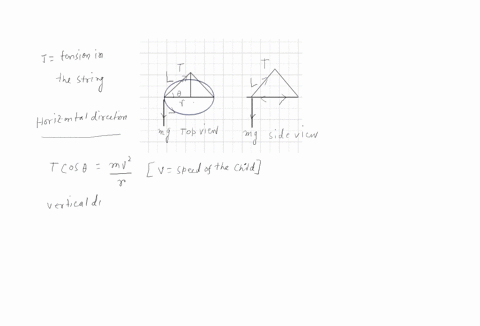 T = tension in
the string
Horizontal direction
T
L
θ
r
mg Top view
T
L
mg side view
T cos θ = mv²/r [V = speed of the child]
vertical di